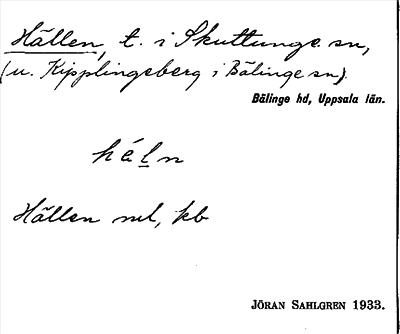 Hällen, t. i Skuttunge sn,
(u. Kipplingeberg i Bälinge sn).
Bälinge hd, Uppsala län.
héln
Hällen nul, kb
JÖRAN SAHLGREN 1933.